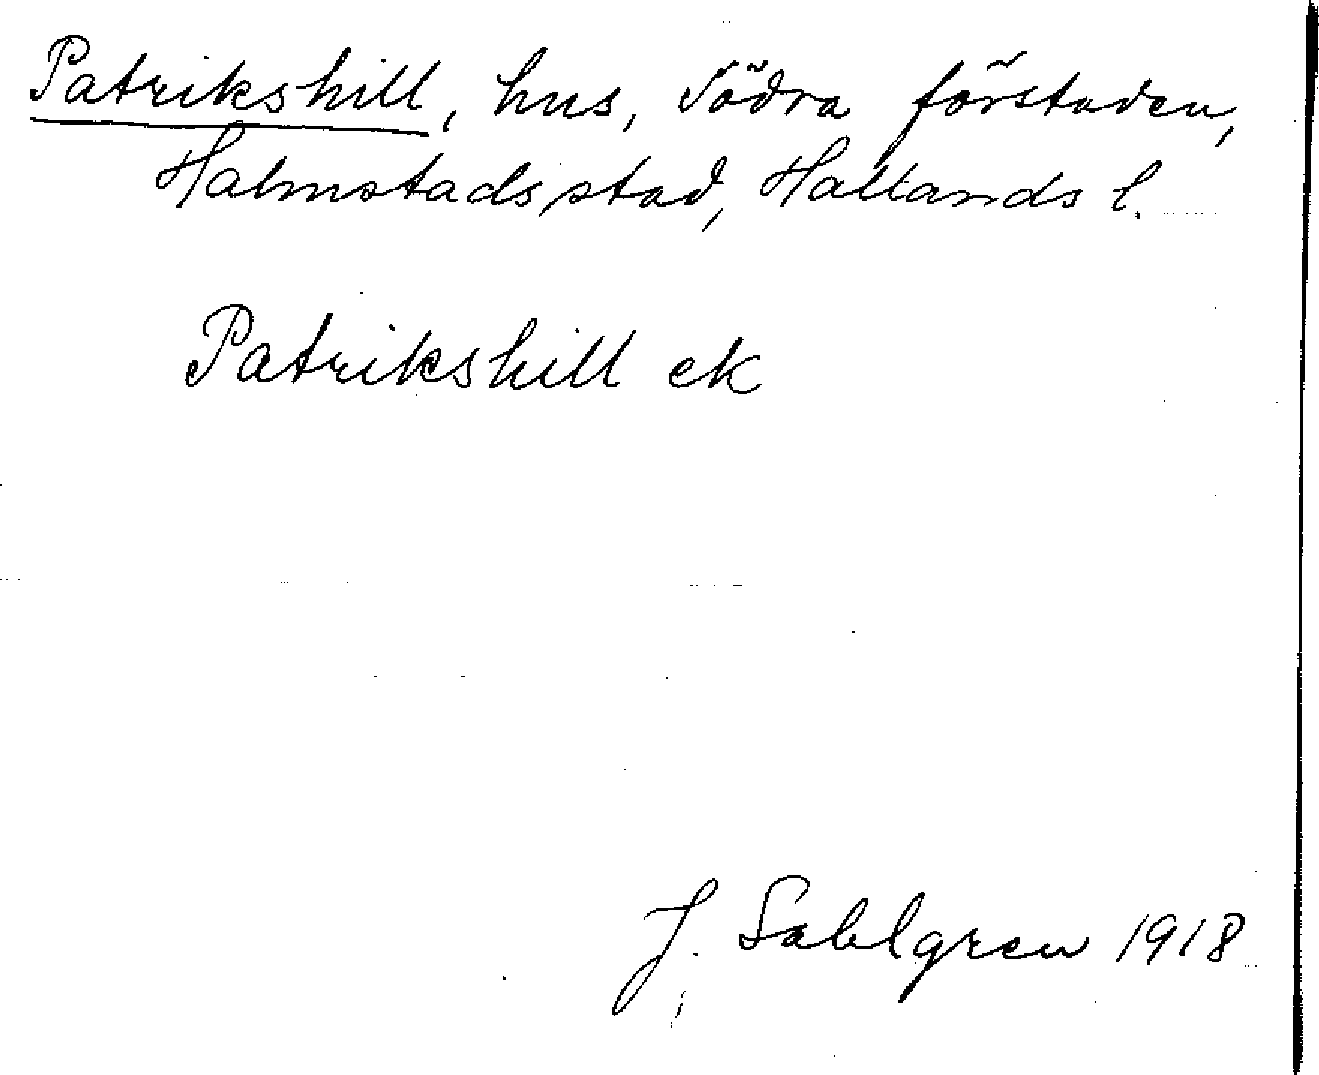 Patrikshill, hus, Södra förstaden,
Halmstads stad, Hallands l.
Patrikshill ek
J. Sahlgren 1918